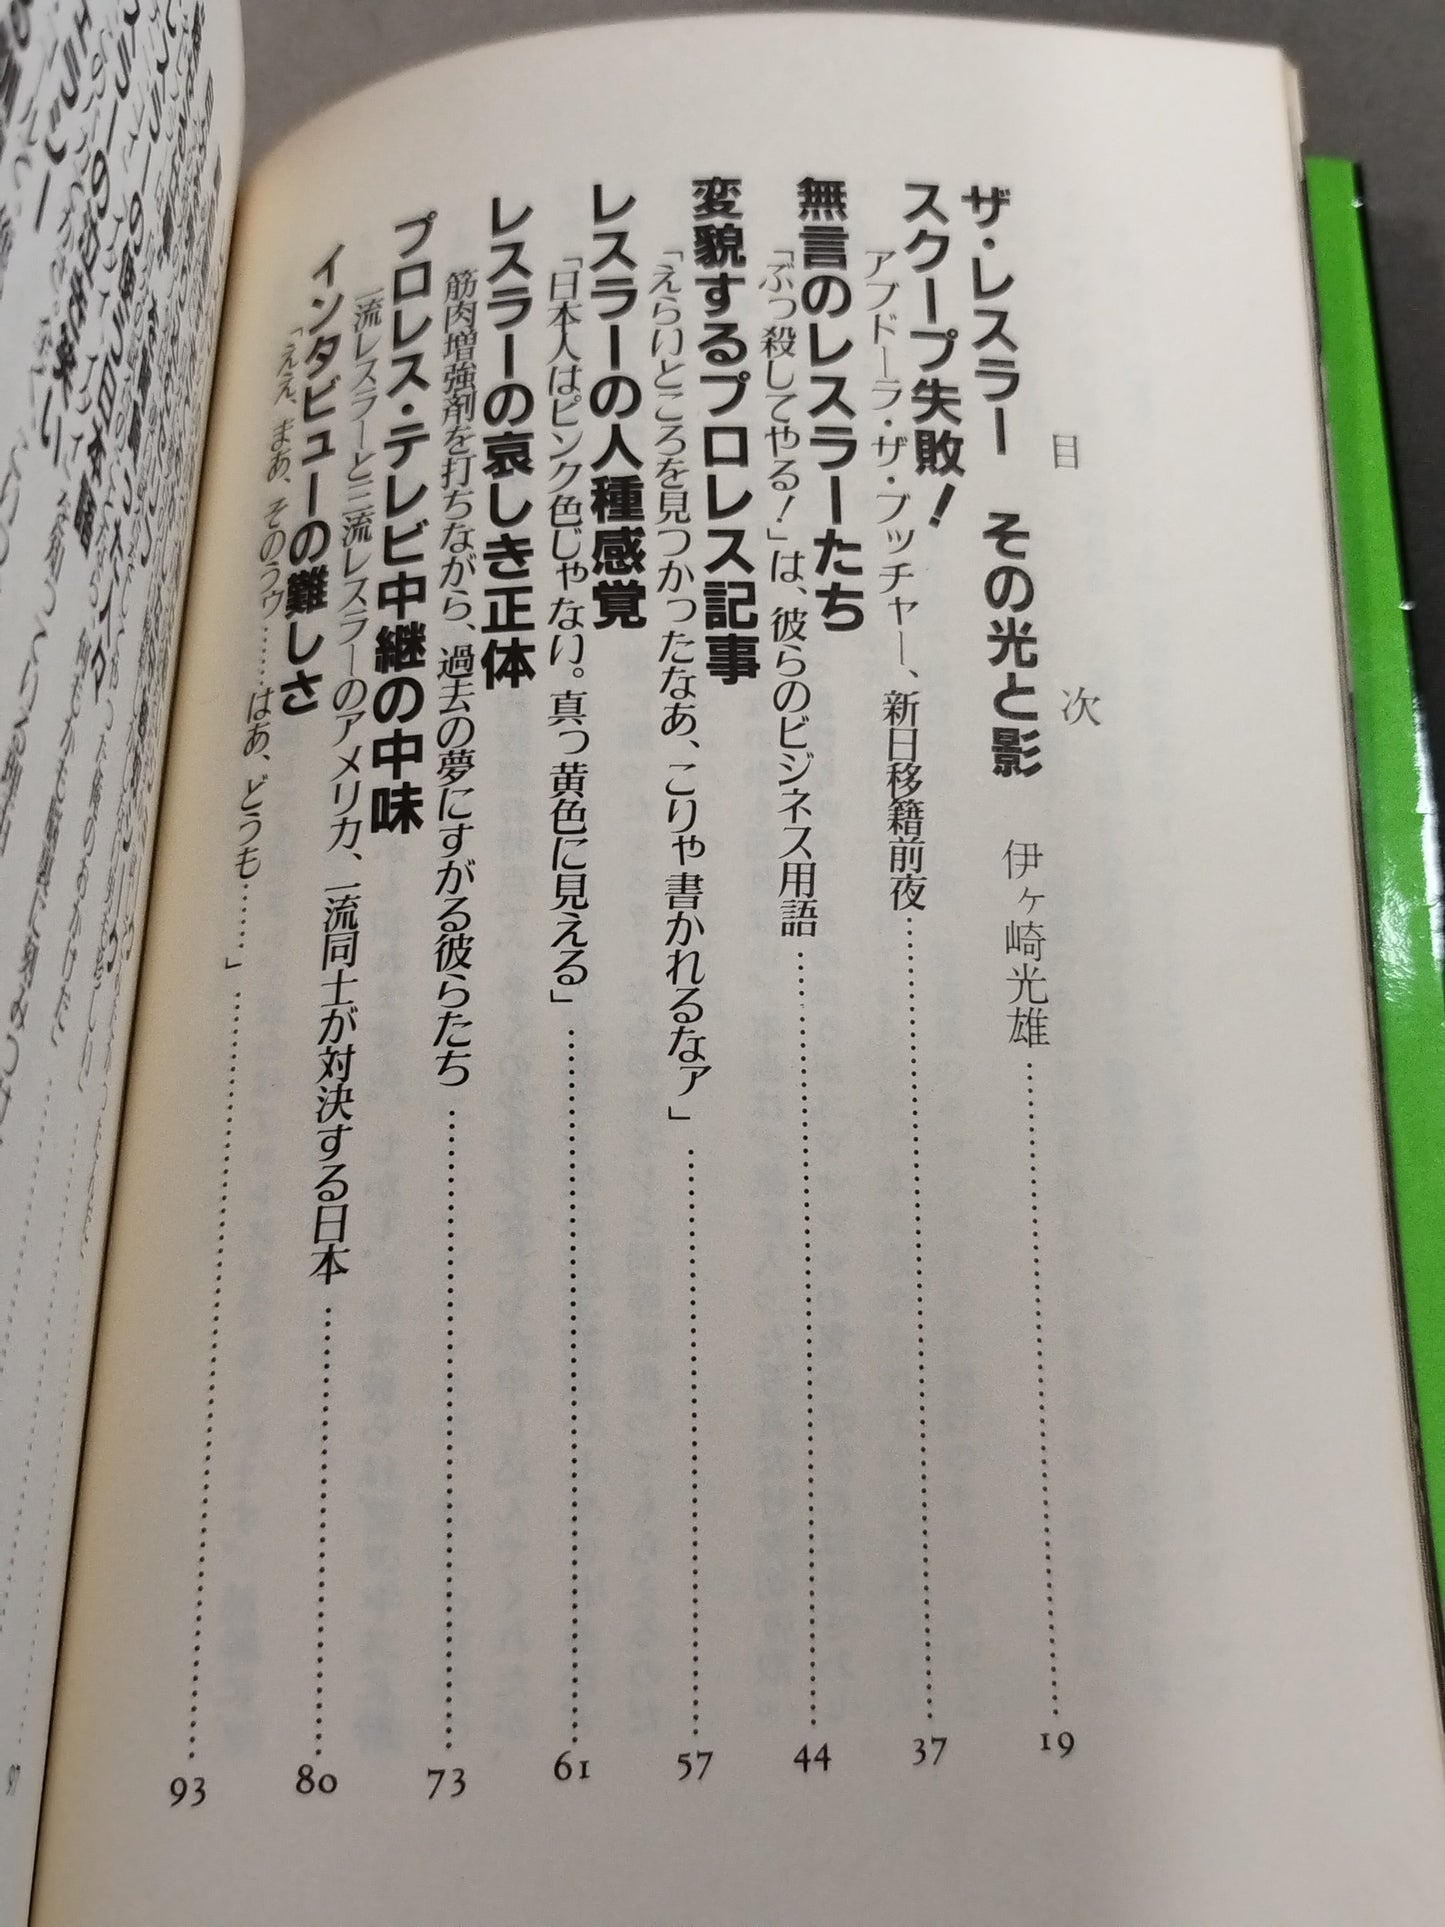 目次
ザ・レスラー　その光と影　伊ヶ崎光雄……19
スクープ失敗！
アブドーラ・ザ・ブッチャー、新日移籍前夜……37
無言のレスラーたち
「ぶっ殺してやる！」は、彼らのビジネス用語……44
変貌するプロレス記事
「えらいところを見つかったなあ、こりゃ書かれるなァ」……57
レスラーの人種感覚
「日本人はピンク色じゃない。真っ黄色に見える」……61
レスラーの哀しき正体
筋肉増強剤を打ちながら、過去の夢にすがる彼らたち……73
プロレス・テレビ中継の中味
一流レスラーと三流レスラーのアメリカ、一流同士が対決する日本……80
インタビューの難しさ
「ええ、まあ、そのうゥ……はあ、どうも……」……93
97